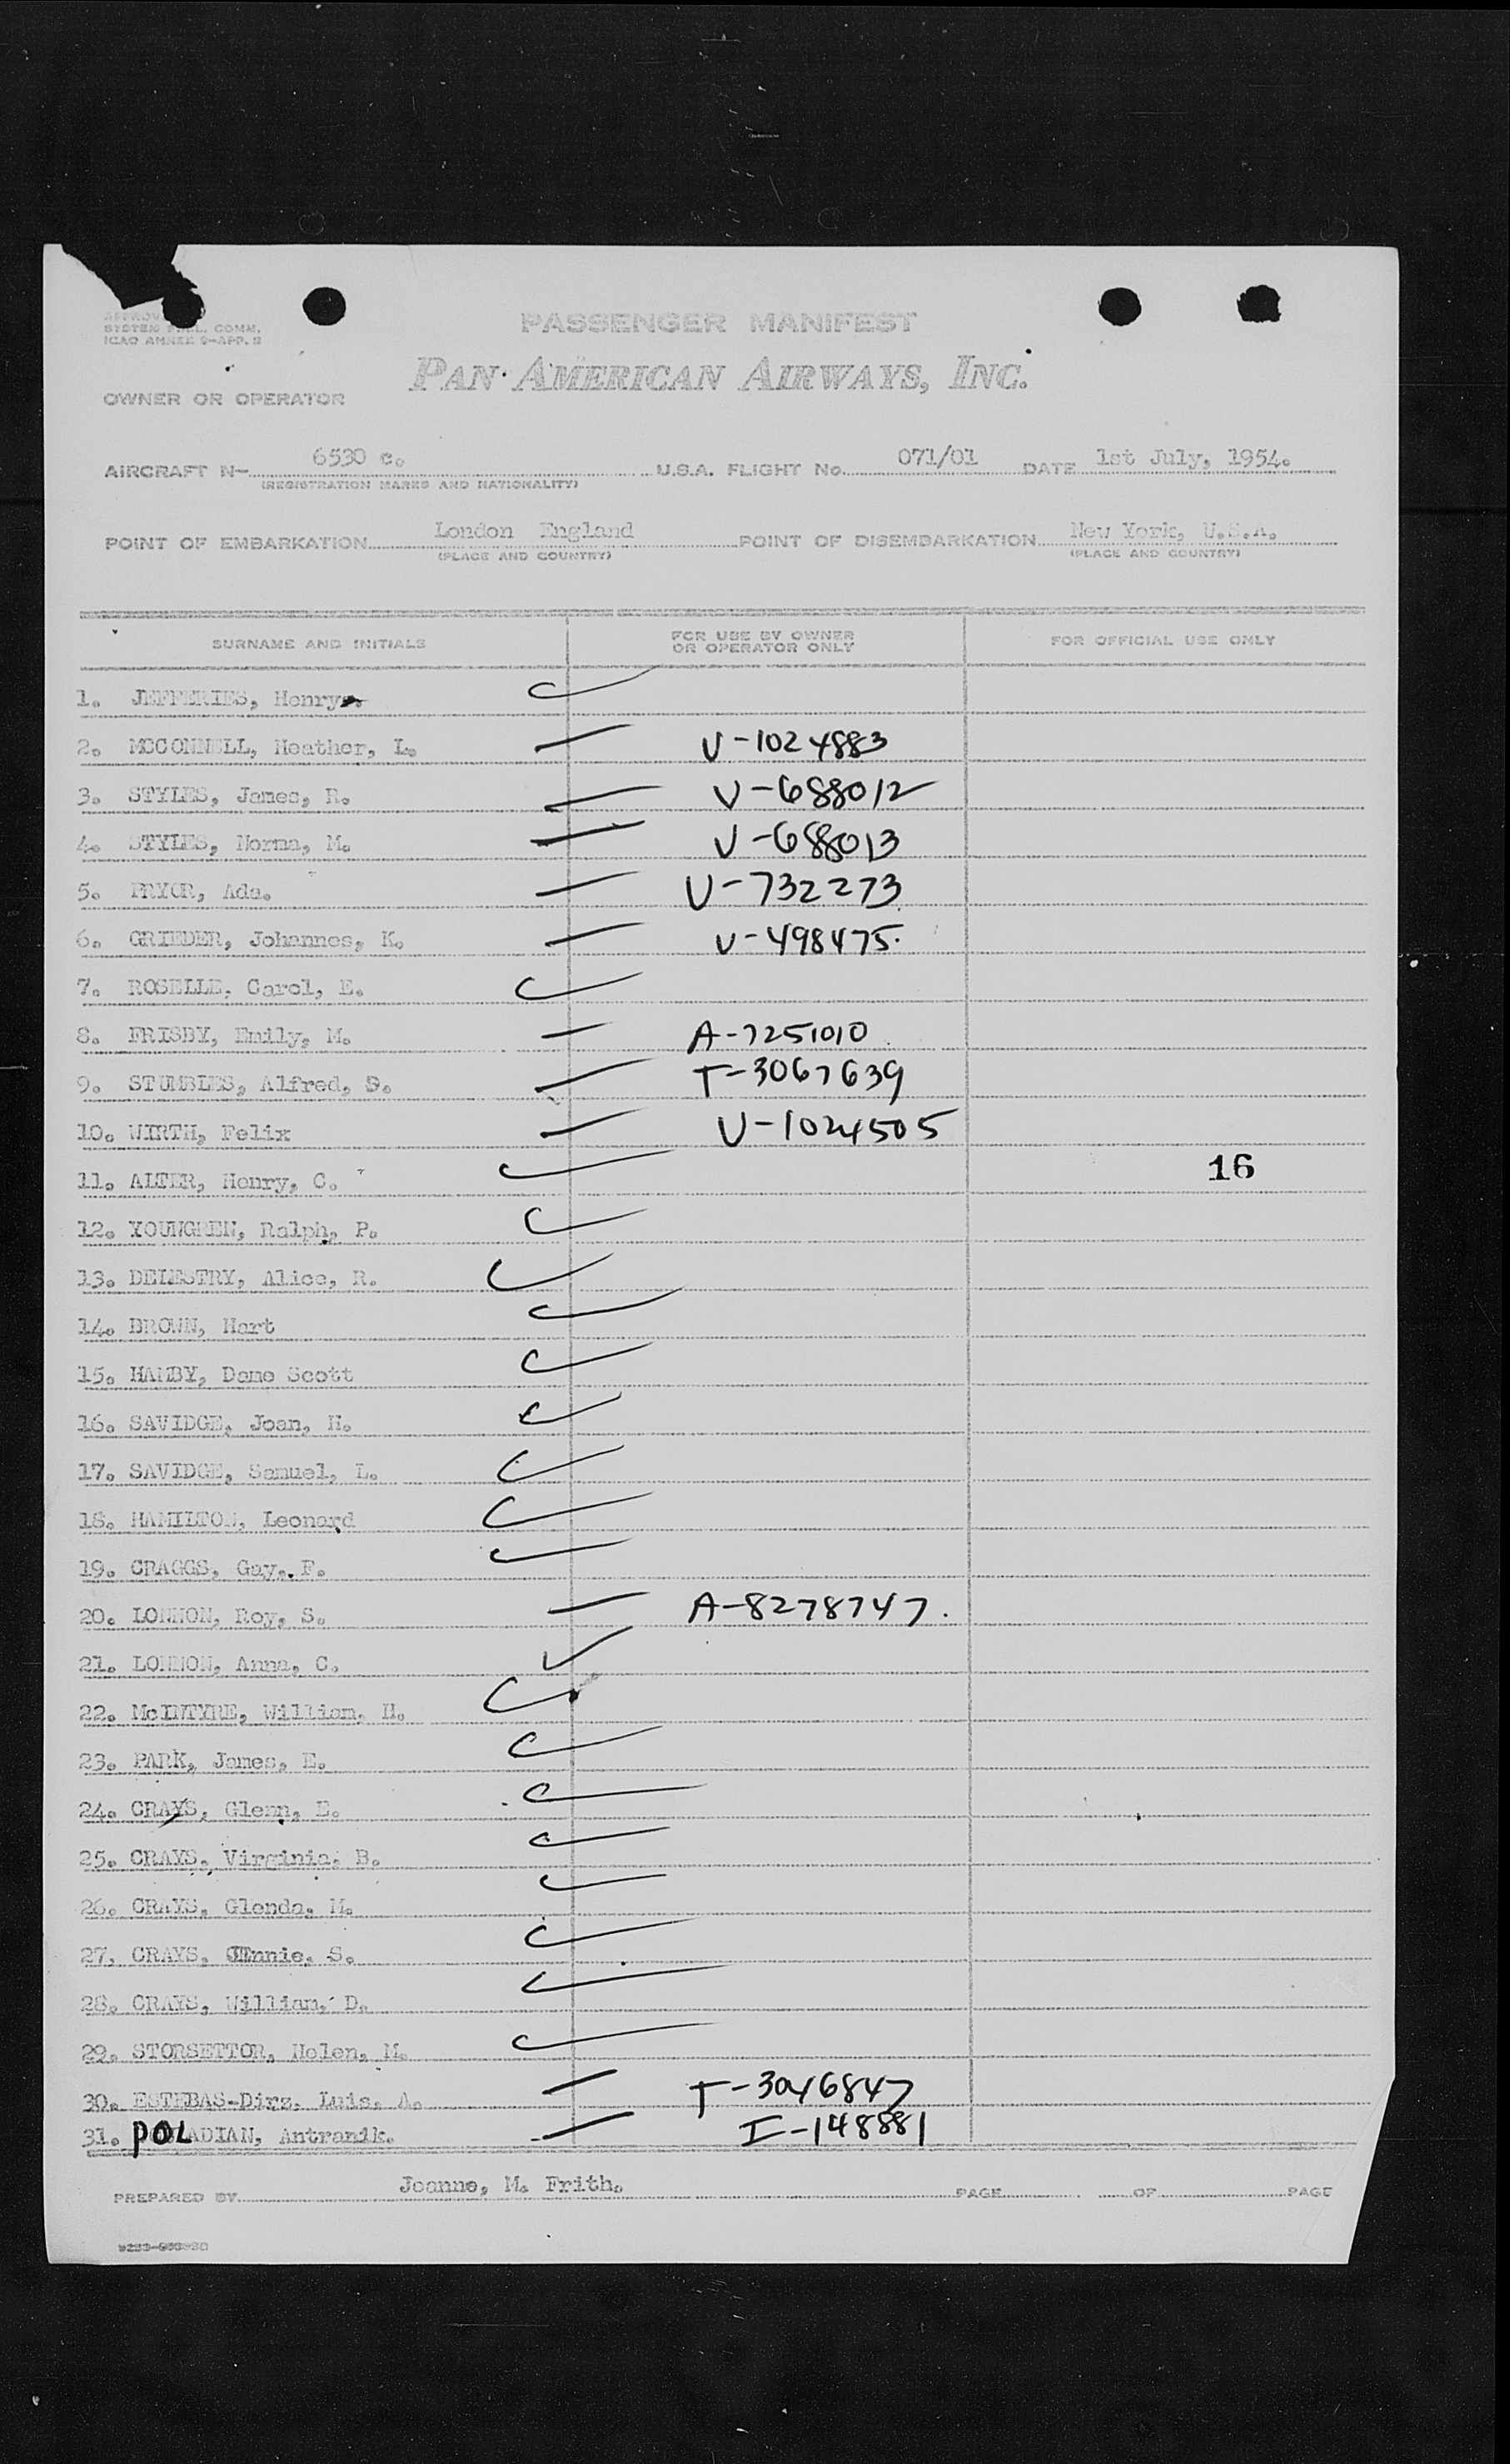 SYSTEM COMM.
ICAO ANNEX 9-APP. 
PASSENGER MANIFEST
PAN AMERICAN AIRWAYS, INC.
OWNER OR OPERATOR
AIRCRAFT N- 6530 c. U.S.A. FLIGHT No. 071/01 DATE 1st July, 1954.
(REGISTRATION MARKS AND NATIONALITY)
POINT OF EMBARKATION London England POINT OF DISEMBARKATION New York, U.S.A.
(PLACE AND COUNTRY) (PLACE AND COUNTRY)
SURNAME AND INITIALS FOR USE BY OWNER OR OPERATOR ONLY FOR OFFICIAL USE ONLY
1. JEFFERIES, Henry.
2. MCCONNELL, Heather, L. V-1024883
3. STYLES, James, R. V-688012
4. STYLES, Norma, M. V-688013
5. PRYOR, Ada. V-732273
6. GRIEDER, Johannes, K. V-498475.
7. ROSELLE, Carol, E.
8. FRISBY, Emily, M. A-7251010
9. STUMBLES, Alfred, T-3067639
10. WIRTH, Felix V-1024505
11. ALTER, Henry, C. 16
12. YOUNGREN, Ralph, P.
13. DELESTRY, Alice, R.
14. BROWN, Hart
15. HAMBY, Dame Scott
16. SAVIDGE, Joan, H.
17. SAVIDGE, Samuel, L.
18. HAMILTON, Leonard
19. CRAGGS, Gay. F.
20. LONNON, Roy, S. A-8278747.
21. LONNON, Anna, C.
22. McINTYRE, William. H.
23. PARK, James, E.
24. CRAYS, Glenn, E.
25. CRAYS, Virginia. B.
26. CRAYS, Glenda. M.
27. CRAYS, S.
28. CRAYS, William. D.
29. STORSETTOR, Helen, M.
30. ESTEBAS-Dirz, Luis. A. T-3046847
31. POLADIAN, Antranik. I-148881
PREPARED BY Joanne, M. Frith. PAGE OF PAGE